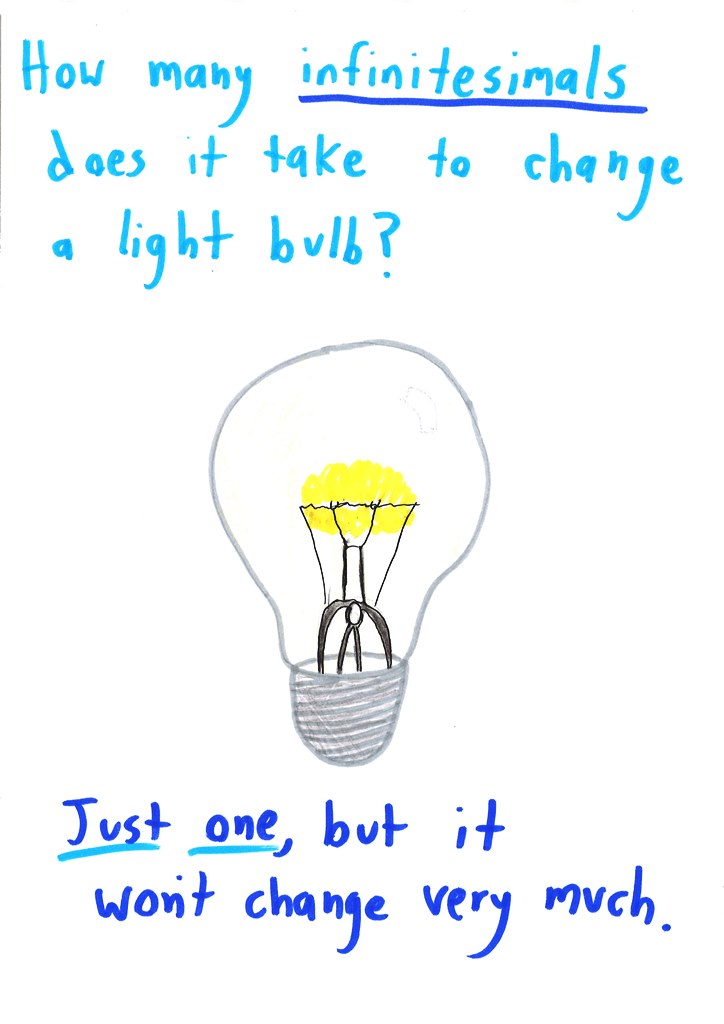 How many infinitesimals
does it take to change
a light bulb?
Just one, but it
won't change very much.